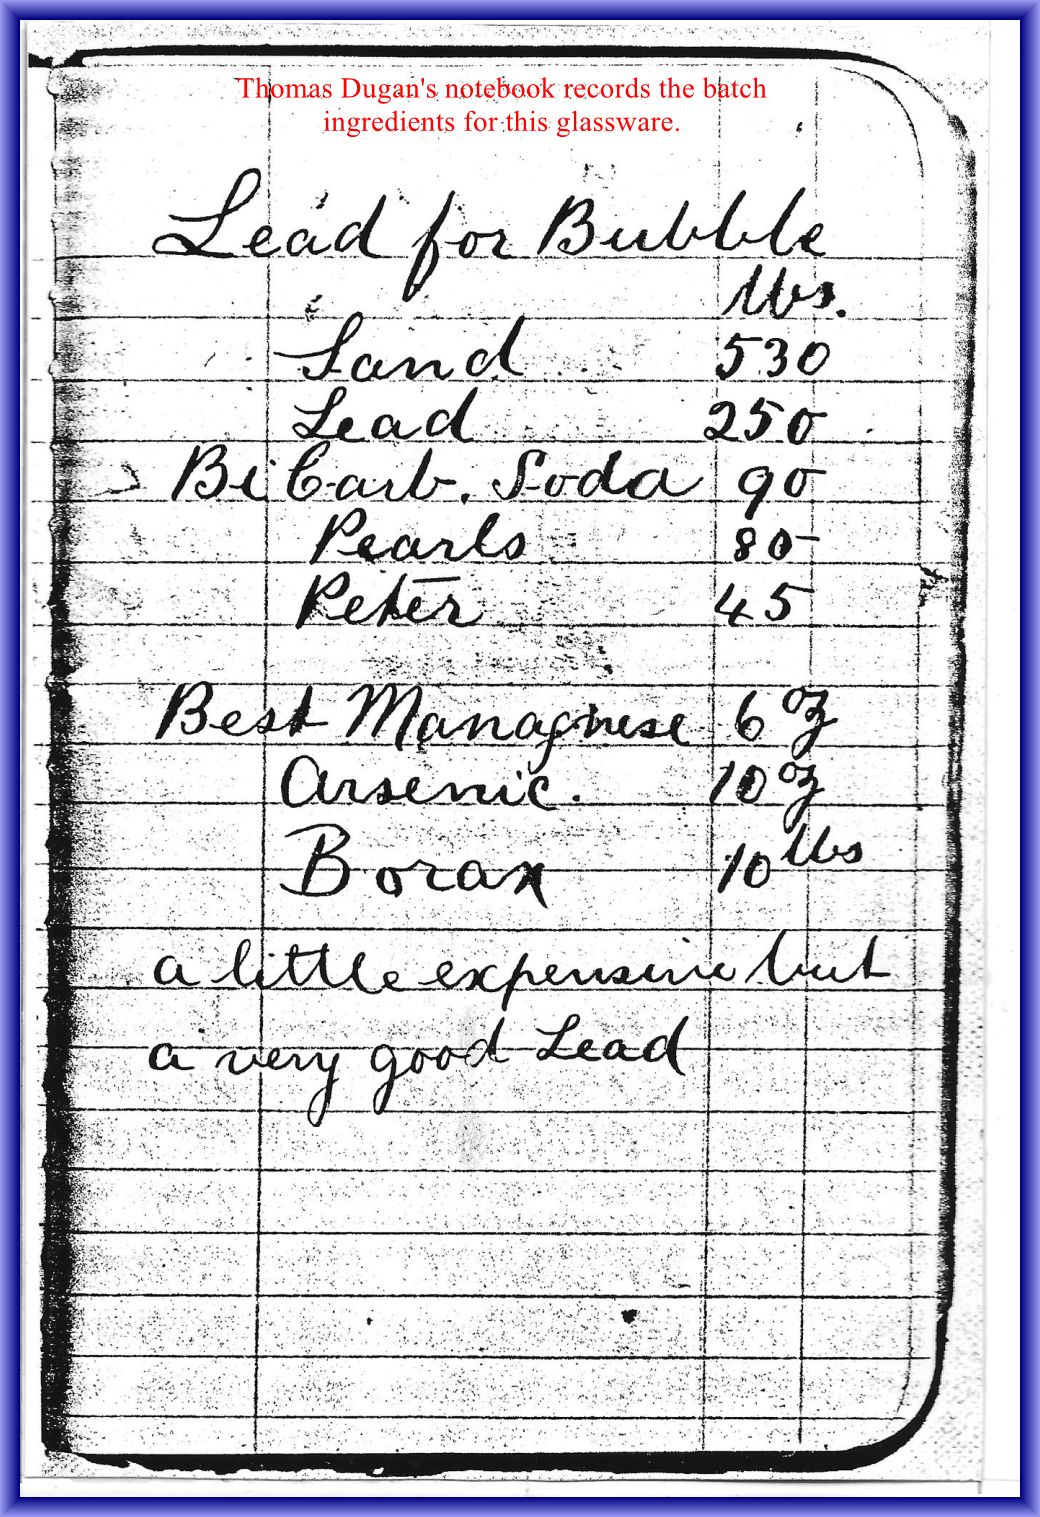 Thomas Dugan's notebook records the batch
ingredients for this glassware.
Lead for Bubble
lbs.
Sand 530
Lead 250
Bi Carb. Soda 90
Pearls 80
Peter 45
Best Managnese 6 oz
Arsenic. 10 oz
Borax 10 lbs
a little expensive but
a very good Lead